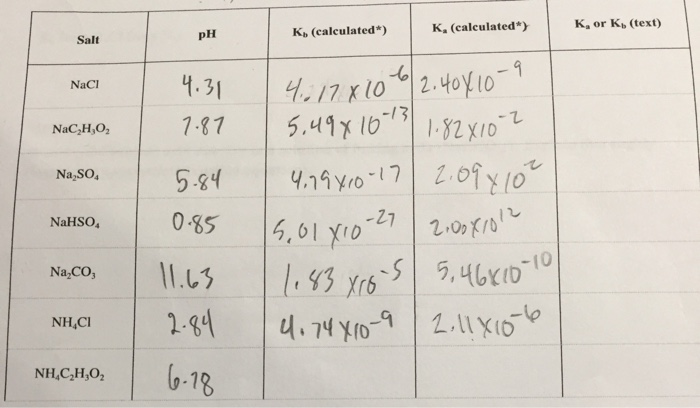 Salt pH K_b (calculated*) K_a (calculated*) K_a or K_b (text)
NaCl 4.31 4.17 x 10^-6 2.40 x 10^-9
NaC₂H₃O₂ 7.87 5.49 x 10^-13 1.82 x 10^-2
Na₂SO₄ 5.84 4.79 x 10^-17 2.09 x 10^2
NaHSO₄ 0.85 5.01 x 10^-27 2.00 x 10^12
Na₂CO₃ 11.63 1.83 x 10^-5 5.46 x 10^-10
NH₄Cl 2.84 4.74 x 10^-9 2.11 x 10^-6
NH₄C₂H₃O₂ 6.78